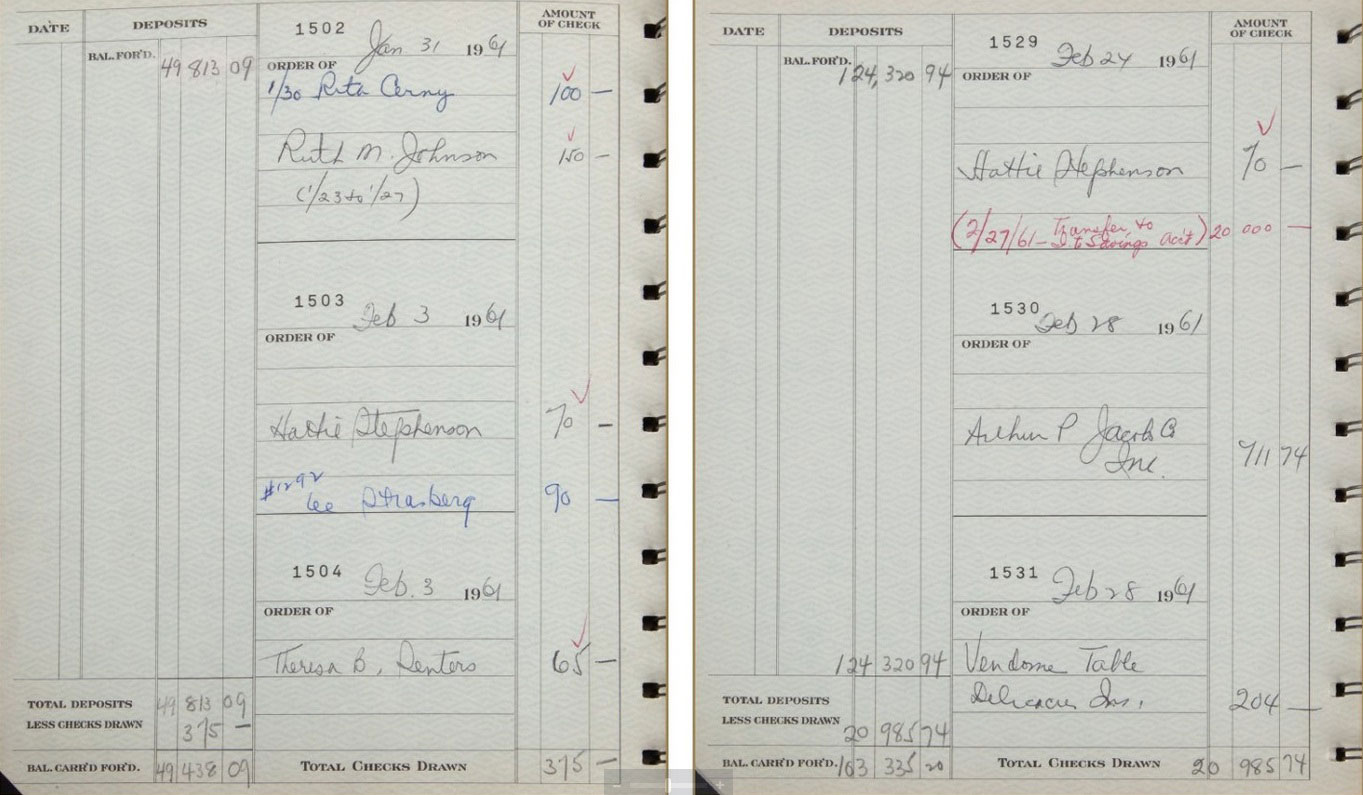 DATE DEPOSITS 1502 Jan 31 1961 AMOUNT OF CHECK
BAL. FOR'D. 49 813 09 ORDER OF
1/30 Rita Cerny 100 —
Ruth M. Johnson 150 —
(1/23 to 1/27)
1503 Feb 3 1961
ORDER OF
Hattie Stephenson 70 —
#1292
Lee Strasberg 90 —
1504 Feb. 3 1961
ORDER OF
Theresa B. 65 —
TOTAL DEPOSITS 49 813 09
LESS CHECKS DRAWN 375 —
BAL. CARR'D FOR'D. 49 438 09 TOTAL CHECKS DRAWN 375 —
DATE DEPOSITS 1529 Feb 24 1961 AMOUNT OF CHECK
BAL. FOR'D. 124,320 94 ORDER OF
Hattie Stephenson 70 —
(2/27/61 — Transfer to
to Savings acct) 20 000 —
1530 Feb 28 1961
ORDER OF
Arthur P Jacobs Co
Inc. 711 74
1531 Feb 28 1961
ORDER OF
124 320 94 Vendome Table
TOTAL DEPOSITS Delicacies Inc. 204 —
LESS CHECKS DRAWN 20 985 74
BAL. CARR'D FOR'D. 103 335 20 TOTAL CHECKS DRAWN 20 985 74